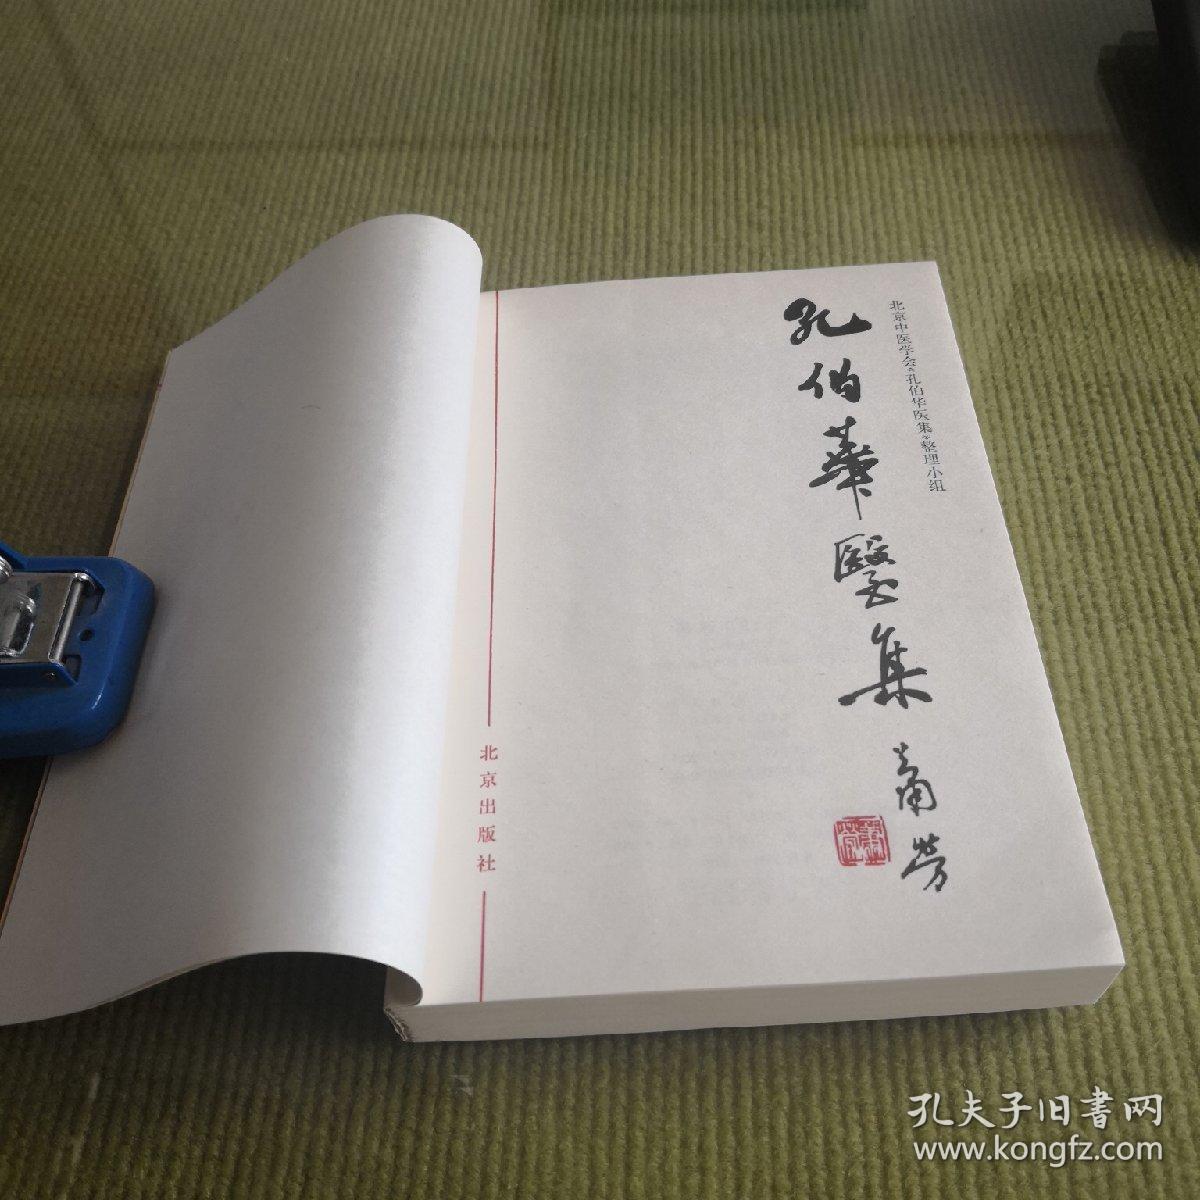 北京中医学会《孔伯华医集》整理小组
孔伯華醫集
萧劳
北京出版社
孔夫子旧書网
www.kongfz.com